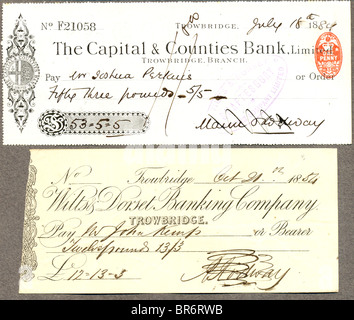 No F21058 Trowbridge, July 18th 1884
The Capital & Counties Bank, Limited
Trowbridge, Branch.
Pay Mr Joshua Perkins or Order
Fifty three pounds - 5/5 -
£ 53-5-5
PENNY
No Trowbridge Oct 21st 1854
Wilts & Dorset Banking Company.
TROWBRIDGE.
Pay Mr John Kemp or Bearer
Twelve pounds 13/3
£ 12-13-3
alamy
Image ID: BR6RWB
www.alamy.com